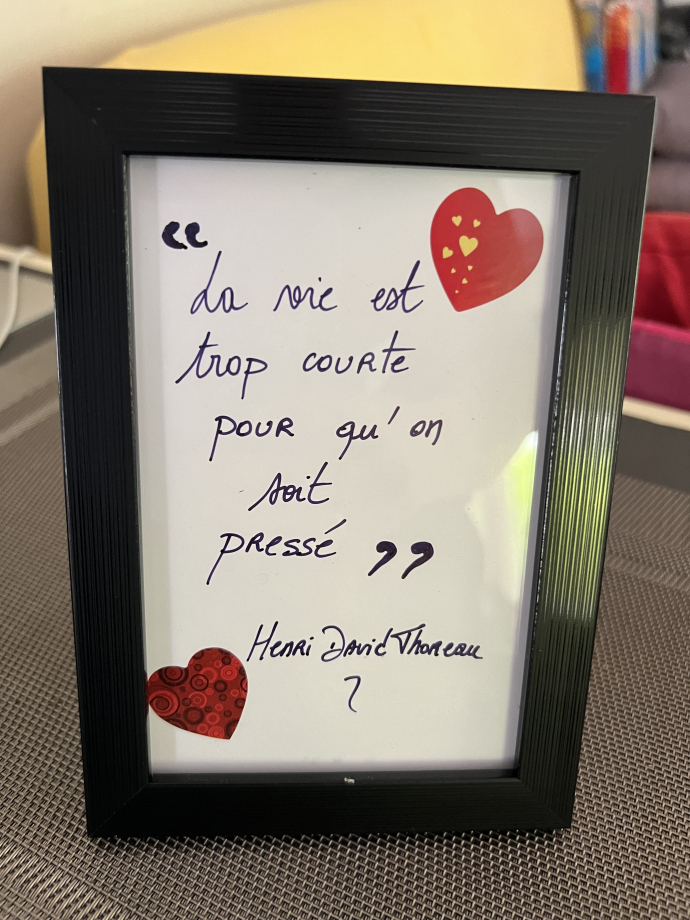 “
La vie est
trop courte
pour qu'on
soit
pressé ”
Henri David Thoreau